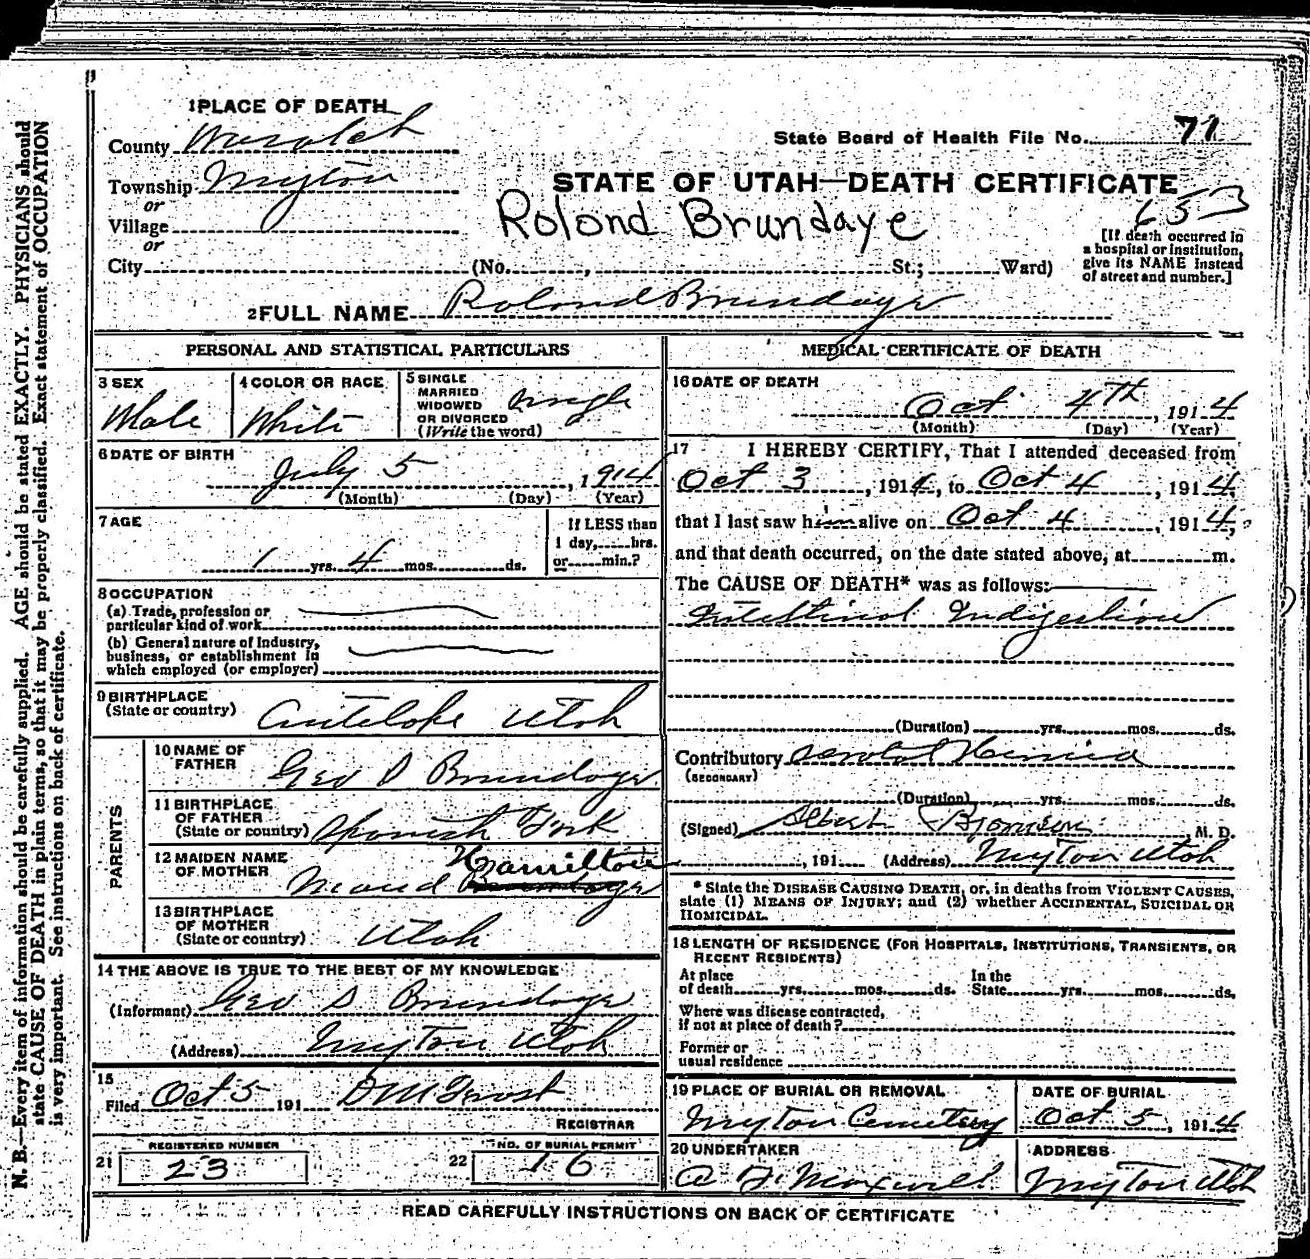 1 PLACE OF DEATH
County Wasatch
State Board of Health File No. 71
Township Myton
or
STATE OF UTAH—DEATH CERTIFICATE
653
Village
or
Rolond Brundaye
[If death occurred in
a hospital or institution,
give its NAME instead
of street and number.]
City (No. , St.; Ward)
2 FULL NAME Rolond Brundage
PERSONAL AND STATISTICAL PARTICULARS
3 SEX
Male
4 COLOR OR RACE
White
5 SINGLE
MARRIED
WIDOWED
OR DIVORCED
(Write the word)
single
6 DATE OF BIRTH
July 5, 1914
(Month) (Day) (Year)
7 AGE
1 yrs. 4 mos. ds.
If LESS than
1 day, hrs.
or min.?
8 OCCUPATION
(a) Trade, profession or
particular kind of work
(b) General nature of Industry,
business, or establishment in
which employed (or employer)
9 BIRTHPLACE
(State or country) Antelope Utah
PARENTS
10 NAME OF
FATHER
Geo D Brundage
11 BIRTHPLACE
OF FATHER
(State or country) Spanish Fork
12 MAIDEN NAME
OF MOTHER
Maud Brundage Hamilton
13 BIRTHPLACE
OF MOTHER
(State or country) Utah
14 THE ABOVE IS TRUE TO THE BEST OF MY KNOWLEDGE
(Informant) Geo D Brundage
(Address) Myton Utah
15
Filed Oct 5 191 D M Frost
REGISTRAR
21 REGISTERED NUMBER
23
22 NO. OF BURIAL PERMIT
16
MEDICAL CERTIFICATE OF DEATH
16 DATE OF DEATH
Oct 4th, 1914
(Month) (Day) (Year)
17 I HEREBY CERTIFY, That I attended deceased from
Oct 3, 1914, to Oct 4, 1914,
that I last saw him alive on Oct 4, 1914,
and that death occurred, on the date stated above, at m.
The CAUSE OF DEATH* was as follows:
Intestinal Indigestion
(Duration) yrs. mos. ds.
Contributory
(SECONDARY)
(Duration) yrs. mos. ds.
(Signed) Albert M. D.
, 191 (Address) Myton Utah
* State the DISEASE CAUSING DEATH, or, in deaths from VIOLENT CAUSES,
state (1) MEANS OF INJURY; and (2) whether ACCIDENTAL, SUICIDAL OR
HOMICIDAL.
18 LENGTH OF RESIDENCE (FOR HOSPITALS, INSTITUTIONS, TRANSIENTS, OR
RECENT RESIDENTS)
At place
of death yrs. mos. ds.
In the
State yrs. mos. ds.
Where was disease contracted,
if not at place of death?
Former or
usual residence
19 PLACE OF BURIAL OR REMOVAL
Myton Cemetery
DATE OF BURIAL
Oct 5, 1914
20 UNDERTAKER
Maxwell
ADDRESS
Myton Utah
READ CAREFULLY INSTRUCTIONS ON BACK OF CERTIFICATE
N. B.—Every item of information should be carefully supplied. AGE should be stated EXACTLY. PHYSICIANS should
state CAUSE OF DEATH in plain terms, so that it may be properly classified. Exact statement of OCCUPATION
is very important. See instructions on back of certificate.